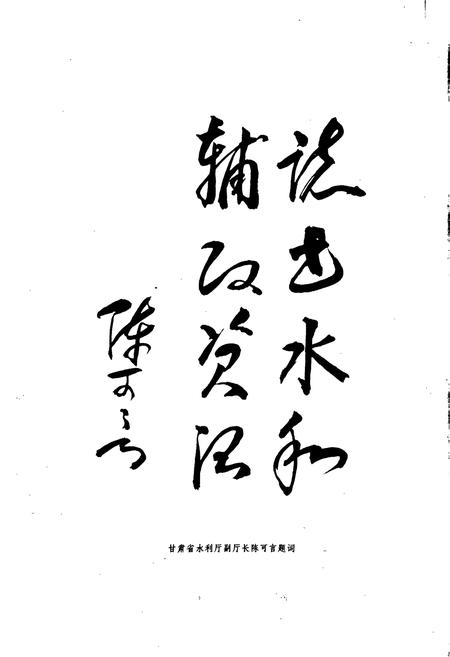 誌书水利
辅政资治
陈可言
甘肃省水利厅副厅长陈可言题词